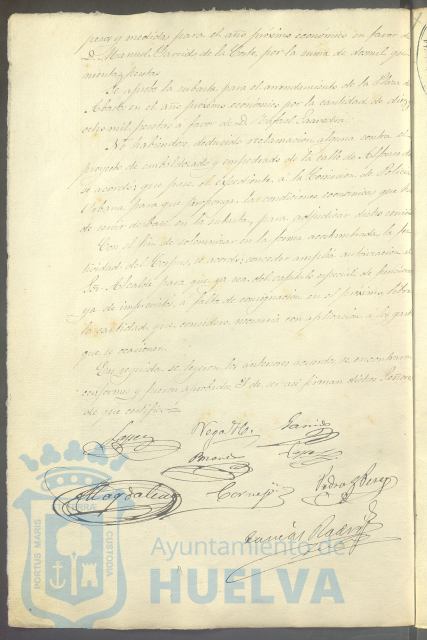 pesas y medidas para el año próximo económico en favor de
D. Manuel Garrido de la Corte, por la suma de dos mil qui-
nientas pesetas.
Se aprobó la subasta para el arrendamiento de la Plaza de
Abasto en el año próximo económico por la cantidad de diez
ocho mil pesetas a favor de D. Rafael Saavedra.
No habiéndose deducido reclamación alguna contra el
proyecto de embaldosado y empedrado de la calle de Alfonso
se acordó: que pase el expediente a la Comisión de Policía
Urbana para que proponga las condiciones económicas que
de servir de base en la subasta, para adjudicar dicho servicio
Con el fin de solemnizar en la forma acostumbrada la fes-
tividad del Corpus, se acordó: conceder amplia autorización al
Sor. Alcalde para que ya sea del capítulo especial de funciones
ya de imprevistos, a falta de consignación en el primero, libre
la cantidad que considere necesaria con aplicación a los gastos
que se ocasionen.
En seguida se leyeron los anteriores acuerdos, se encontraron
conformes y fueron aprobados. Y de ser así firman dichos Señores
de que certifico
Lopez Vega Garrido
Lopez
Magdalena
PORTUS MARIS
CUSTODIA
Ayuntamiento de
HUELVA